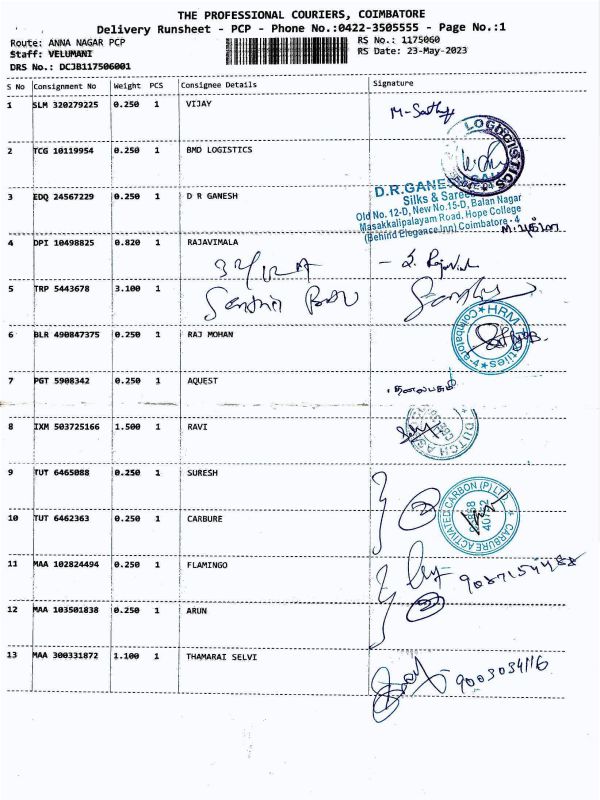 THE PROFESSIONAL COURIERS, COIMBATORE
Delivery Runsheet - PCP - Phone No.:0422-3505555 - Page No.:1
Route: ANNA NAGAR PCP
RS No.: 1175060
Staff: VELUMANI
RS Date: 23-May-2023
DRS No.: DCJB117506001
S No Consignment No Weight PCS Consignee Details Signature
1 SLM 320279225 0.250 1 VIJAY
2 TCG 10119954 0.250 1 BMD LOGISTICS
LOGISTICS
3 EDQ 24567229 0.250 1 D R GANESH
D.R.GANE
Silks & Sarees
Old No. 12-D, New No.15-D, Balan Nagar
Masakkalipalayam Road, Hope College
(Behind Elegance Inn) Coimbatore - 4
4 DPI 10498825 0.820 1 RAJAVIMALA
5 TRP 5443678 3.100 1
6 BLR 490847375 0.250 1 RAJ MOHAN
HRM
Coimbatore-4
7 PGT 5908342 0.250 1 AQUEST
8 IXM 503725166 1.500 1 RAVI
DUTCH
9 TUT 6465088 0.250 1 SURESH
10 TUT 6462363 0.250 1 CARBURE
CARBURE ACTIVATED CARBON (P) LTD
11 MAA 102824494 0.250 1 FLAMINGO
12 MAA 103501838 0.250 1 ARUN
13 MAA 300331872 1.100 1 THAMARAI SELVI
9003034116